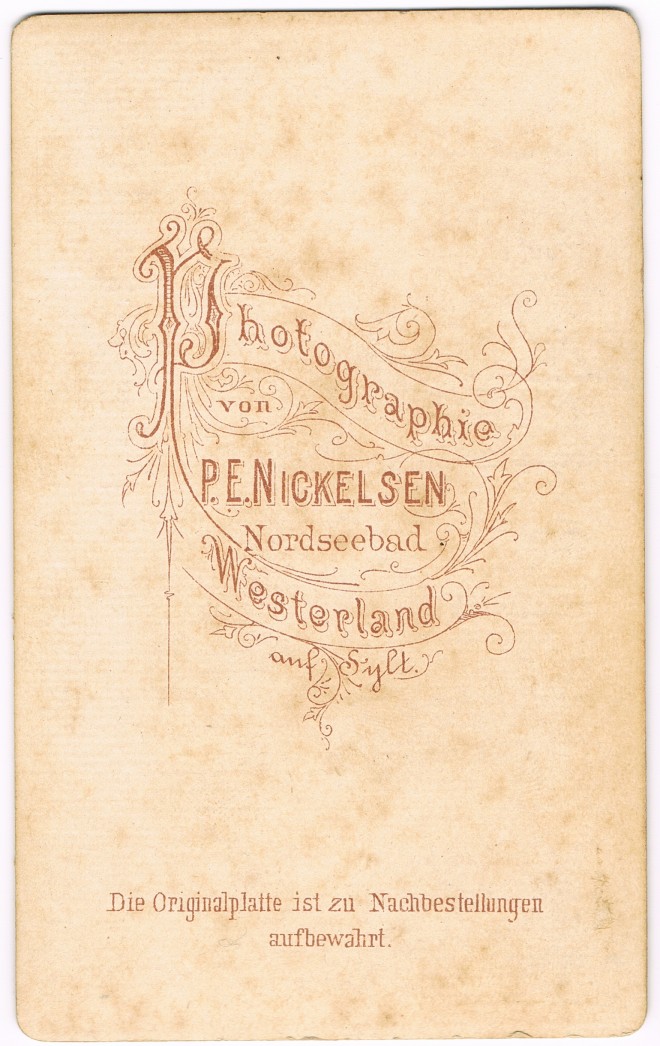 Photographie
von
P. E. NICKELSEN
Nordseebad
Westerland
auf Sylt.
Die Originalplatte ist zu Nachbestellungen
aufbewahrt.